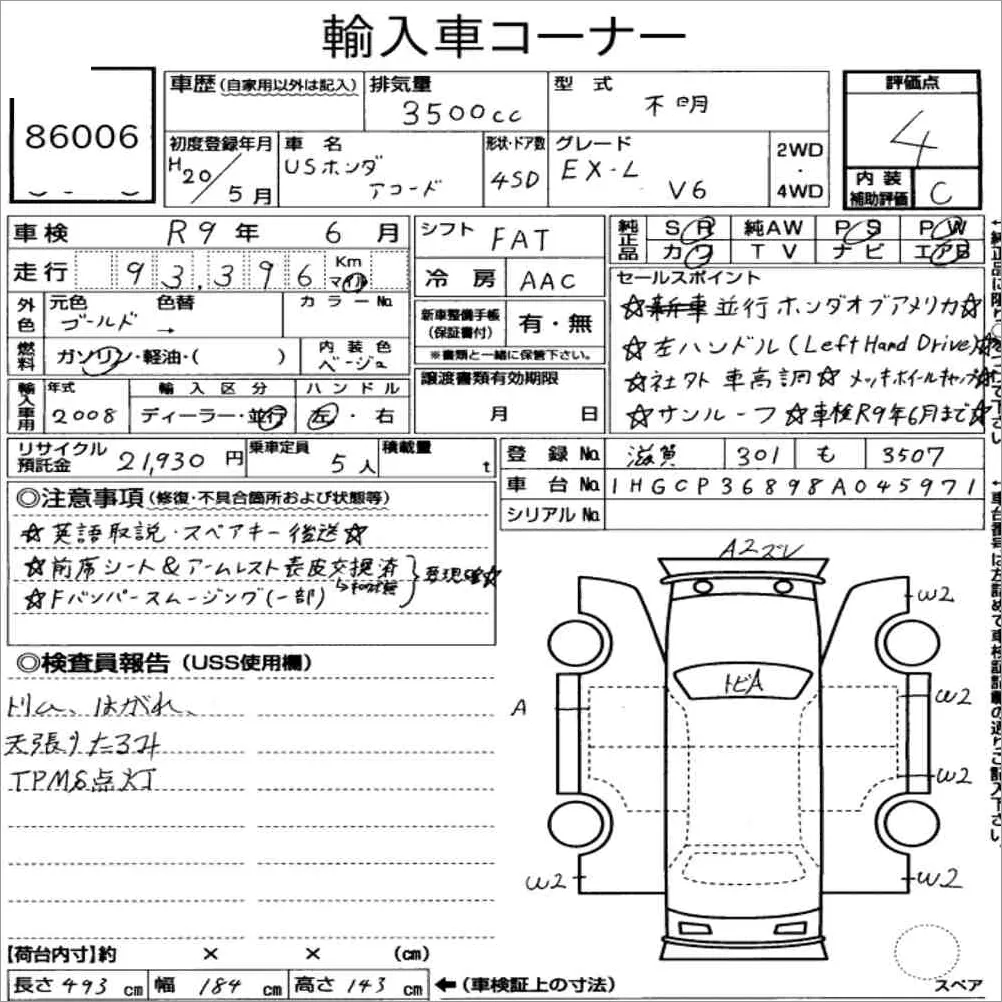 輸入車コーナー
86006
車歴(自家用以外は記入)
排気量
3500cc
型 式
不明
評価点
4
初度登録年月
H20/5月
車 名
USホンダ
アコード
形状・ドア数
4SD
グレード
EX-L
V6
2WD
・
4WD
内 装
補助評価
C
車検 R9年 6月
走行 93,396 Km
マイル
シフト FAT
冷 房 AAC
純正品
SR 純AW PS PW
カワ TV ナビ エアB
外色
元色 色替 カラーNo.
ゴールド →
燃料
ガソリン・軽油・( )
内 装 色
ベージュ
新車整備手帳
(保証書付)
有・無
※書類と一緒に保管下さい。
セールスポイント
☆新車並行ホンダオブアメリカ☆
☆左ハンドル(Left Hand Drive)☆
☆社外 車高調☆メッキホイールキャップ☆
☆サンルーフ☆車検R9年6月まで☆
輸入車用
年式
2008
輸 入 区 分
ディーラー・並行
ハ ン ド ル
左・右
譲渡書類有効期限
月 日
リサイクル
預託金
21,930円
乗車定員
5人
積載量
t
登 録 No. 滋賀 301 も 3507
車 台 No. 1HGCP36898A045971
シリアルNo.
◎注意事項(修復・不具合箇所および状態等)
☆英語取説・スペアキー後送☆
☆前席シート&アームレスト表皮交換済
☆Fバンパースムージング(一部)
要現確☆
◎検査員報告(USS使用欄)
トリム、はがれ、
天張りたるみ
TPMS点灯
A2ズレ
W2
トビA
A
W2
W2
W2
W2
スペア
【荷台内寸】約 × × (cm)
長さ493cm 幅 184cm 高さ143cm ←(車検証上の寸法)